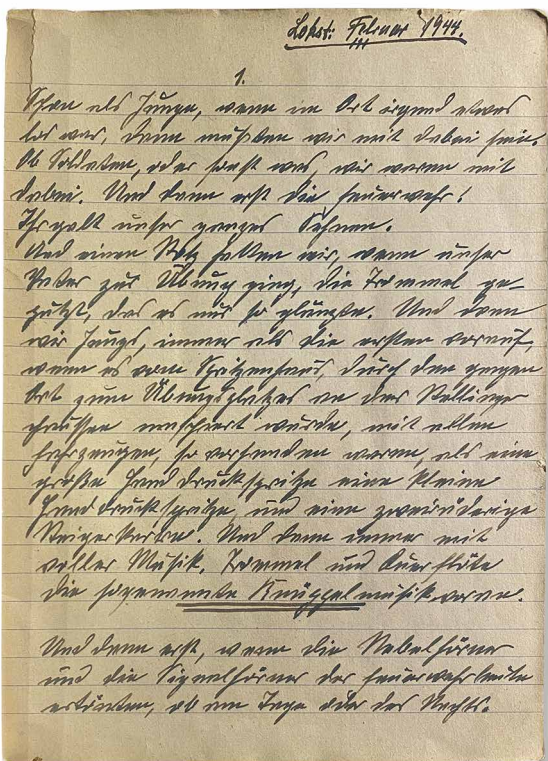 Lokst: Februar 1944.
1.
Schon als Junge, wenn im Ort irgend etwas
los war, dann mußten wir mit dabei sein.
Ob Soldaten, oder sonst was, wir waren mit
dabei. Und dann erst die Feuerwehr!
Ihr galt unser ganzes Sehnen.
Und einen Stolz hatten wir, wenn unser
Vater zur Übung ging, die Trommel ge-
putzt, das es nur so glänzte. Und dann
wir Jungs, immer als die ersten vorauf,
wenn es vom Spritzenhaus, durch den ganzen
Ort zum Übungsplatzes an der Stellinger
chaussee marschiert wurde, mit allen
Fahrzeugen, so vorhanden waren, als eine
große Handdruckspritze eine kleine
Handdruckspritze, und eine zweirädrige
Steigerkarre. Und dann immer mit
voller Musik. Trommel und Querflöte
die sogenannte Knüppelmusik voran.
Und dann erst, wenn die Nebelhörner
und die Signalhörner der Feuerwehrleute
ertönten, ob am Tage oder des Nachts.